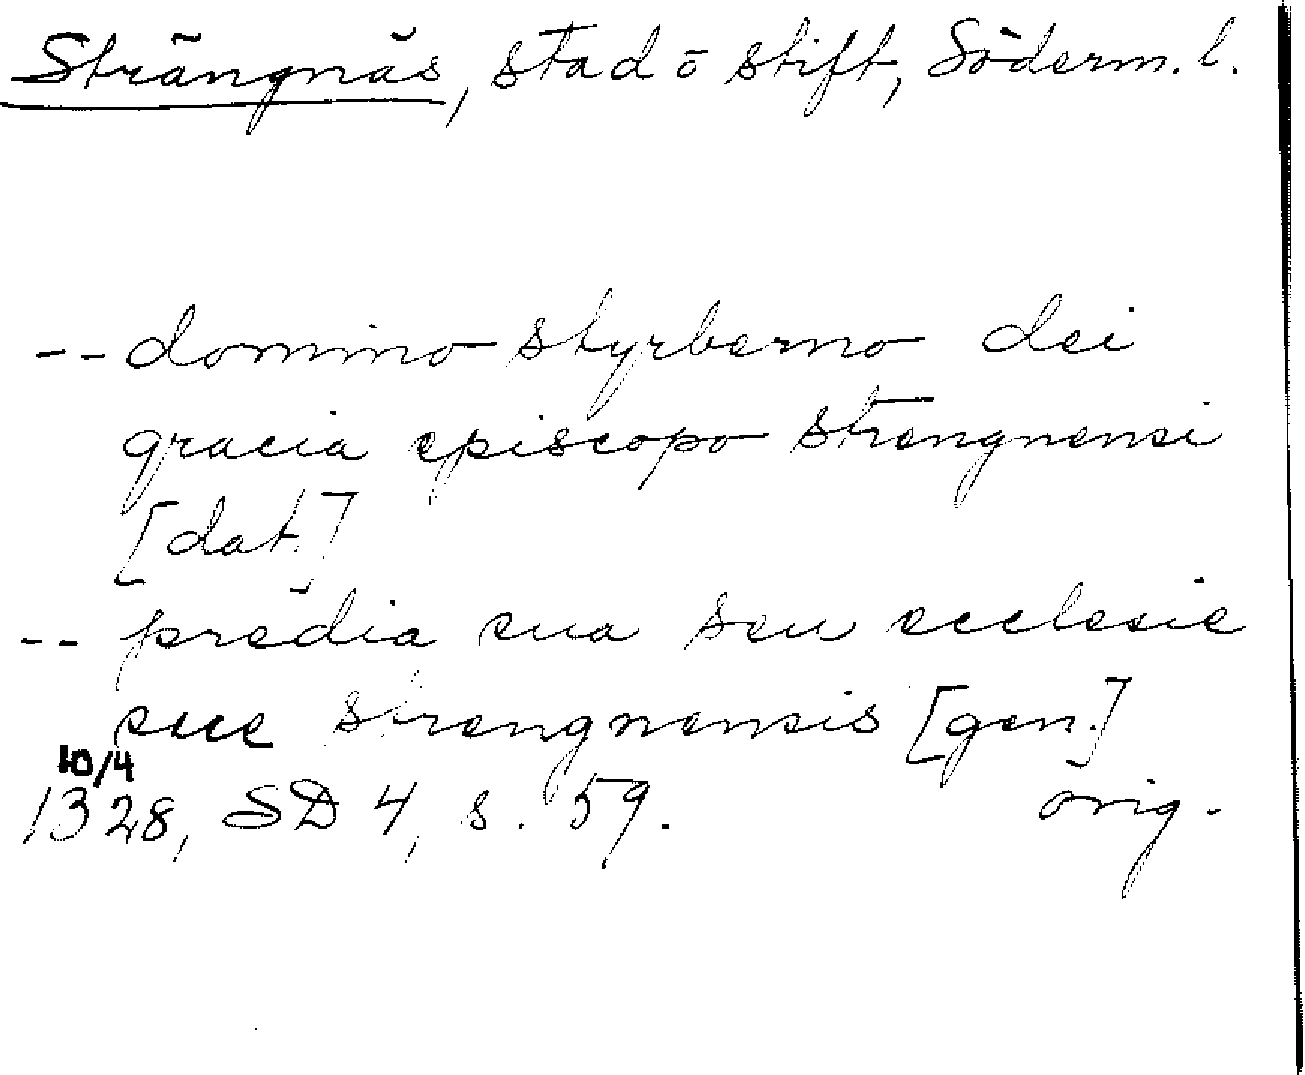 Strängnäs, stad o stift, Söderm. l.
-- domino styrberno dei
gracia episcopo strengnensi
[dat.]
-- predia sua seu ecclesie
sue strengnensis [gen.]
10/4
1328, SD 4, s. 59. orig.